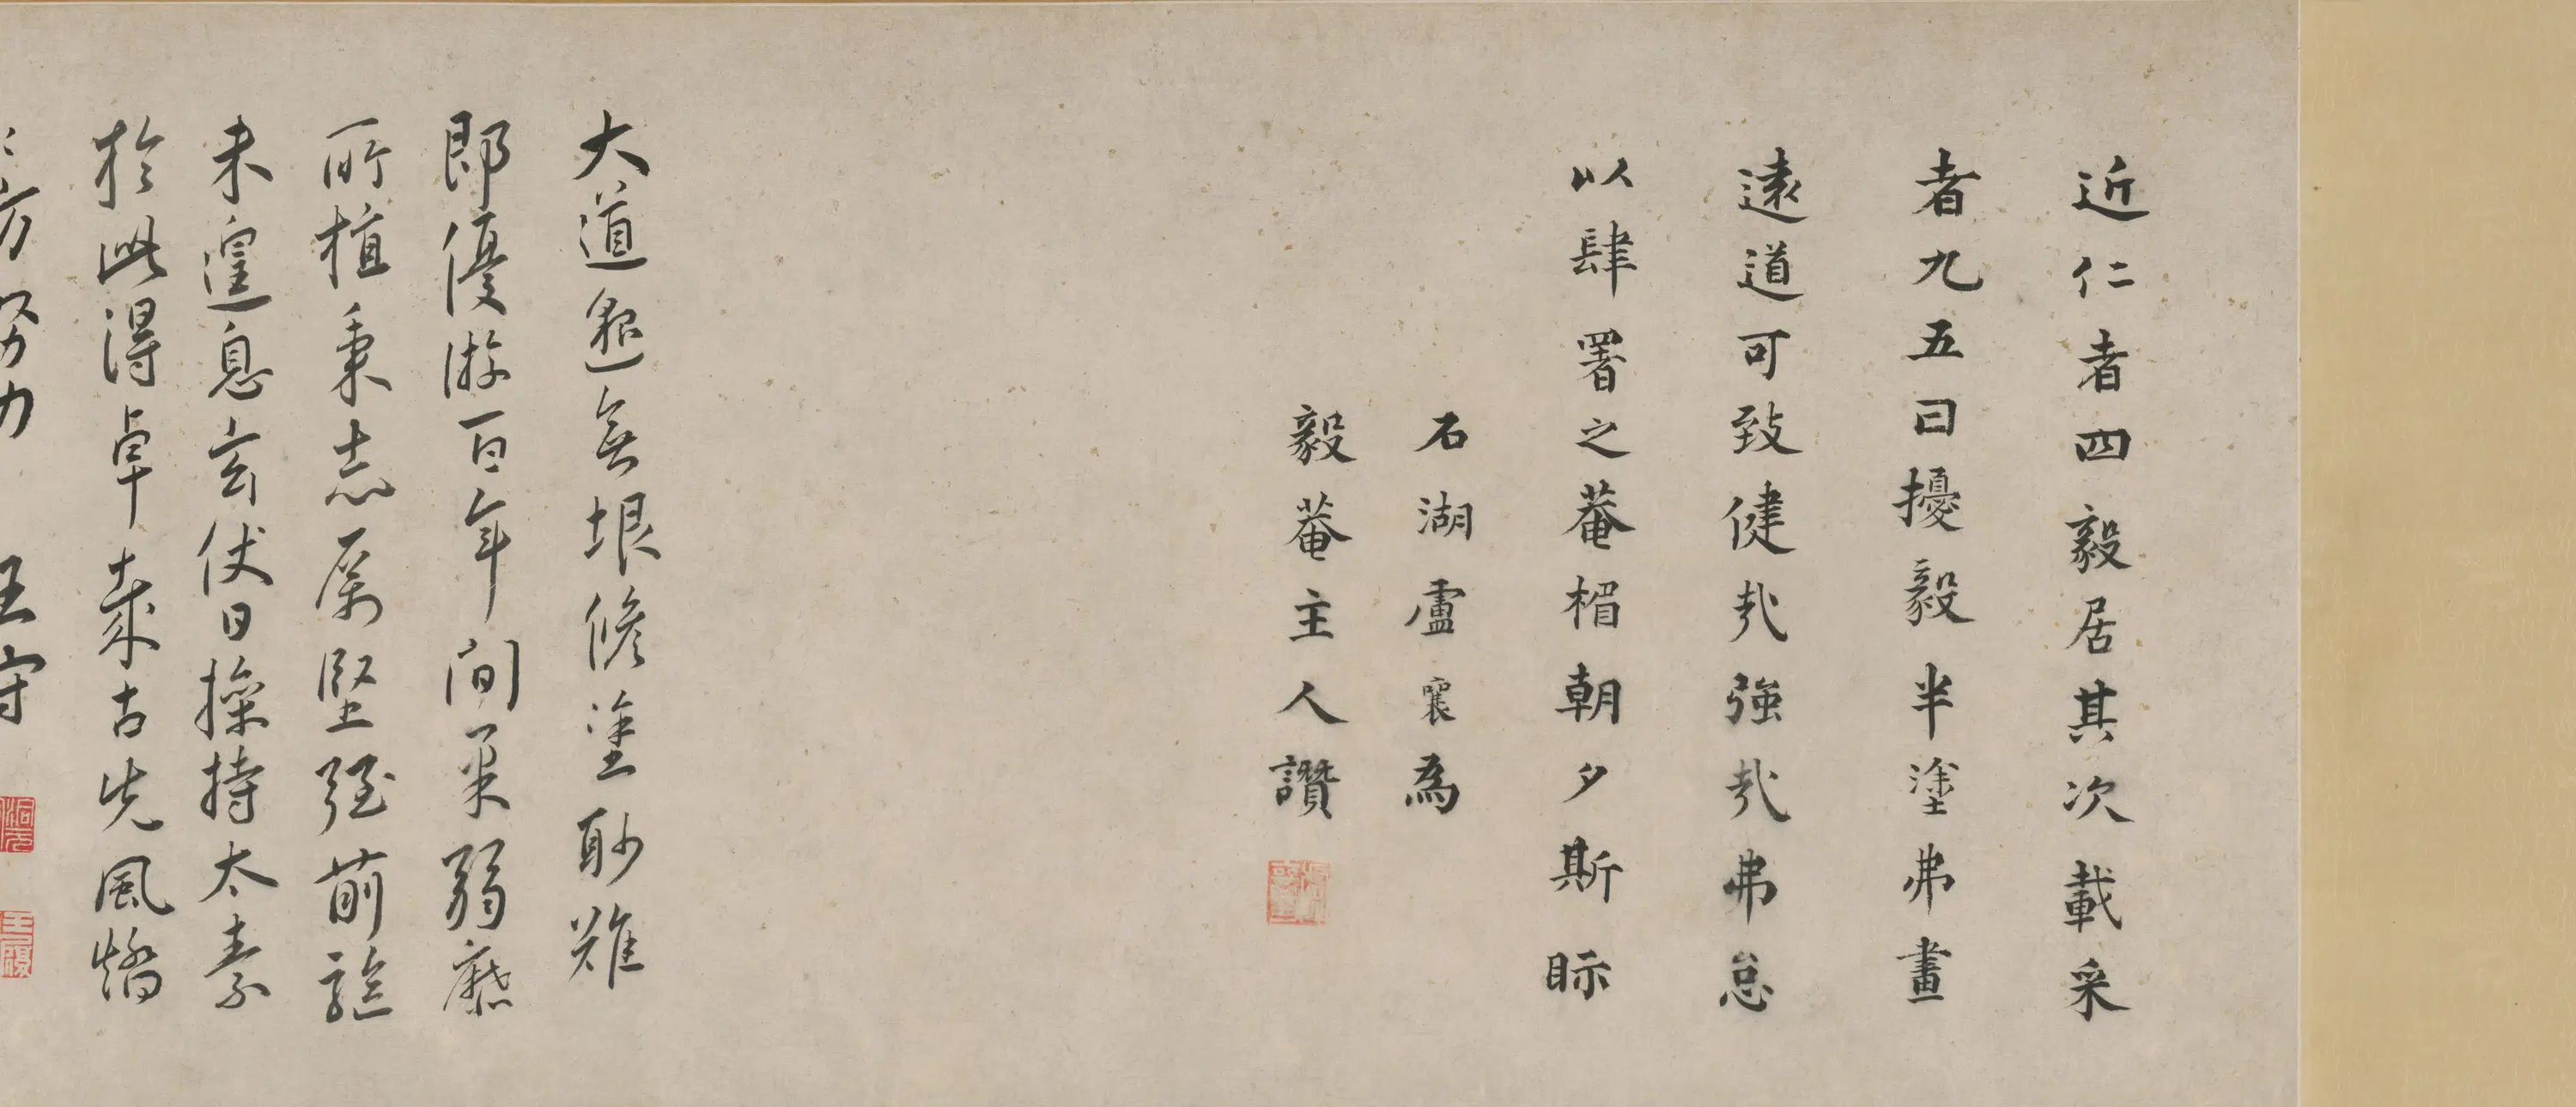 近仁者四毅居其次載采
者九五曰擾毅半塗弗畫
遠道可致健哉強哉弗怠
以肆署之菴楣朝夕斯眎
石湖盧襄為
毅菴主人讚
大道邈無垠脩塗眇難
即優游百年間柔弱靡
所植秉志厲堅強前
未遑息玄日操持太素
於此得卓哉古先風矯
方努力 王守